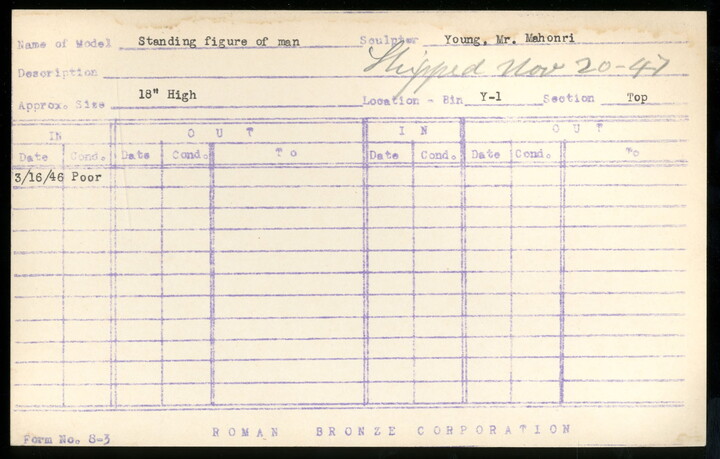 Name of Model Standing figure of man Sculptor Young, Mr. Mahonri
Description Shipped Nov 20-47
Approx. Size 18" High Location - Bin Y-1 Section Top
IN OUT IN OUT
Date Cond. Date Cond. To Date Cond. Date Cond. To
3/16/46 Poor
Form No. 8-3 ROMAN BRONZE CORPORATION